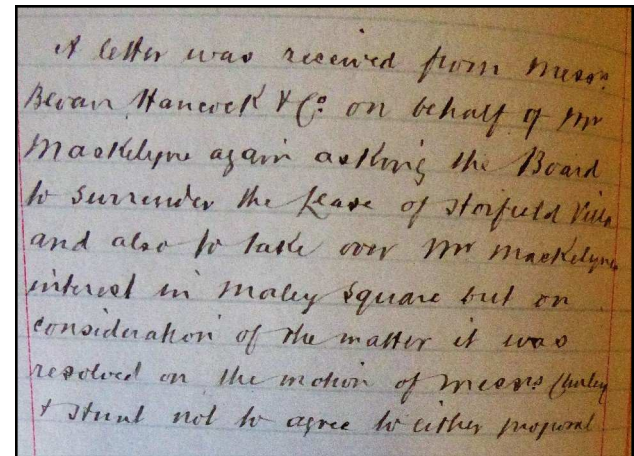 A letter was received from Messrs
Bevan Hancock & Co. on behalf of Mr
Maskelyne again asking the Board
to surrender the Lease of Horfield Villa
and also to take over Mr Maskelynes
interest in Maley Square but on
consideration of the matter it was
resolved on the motion of Messrs
& Stunt not to agree to either proposal